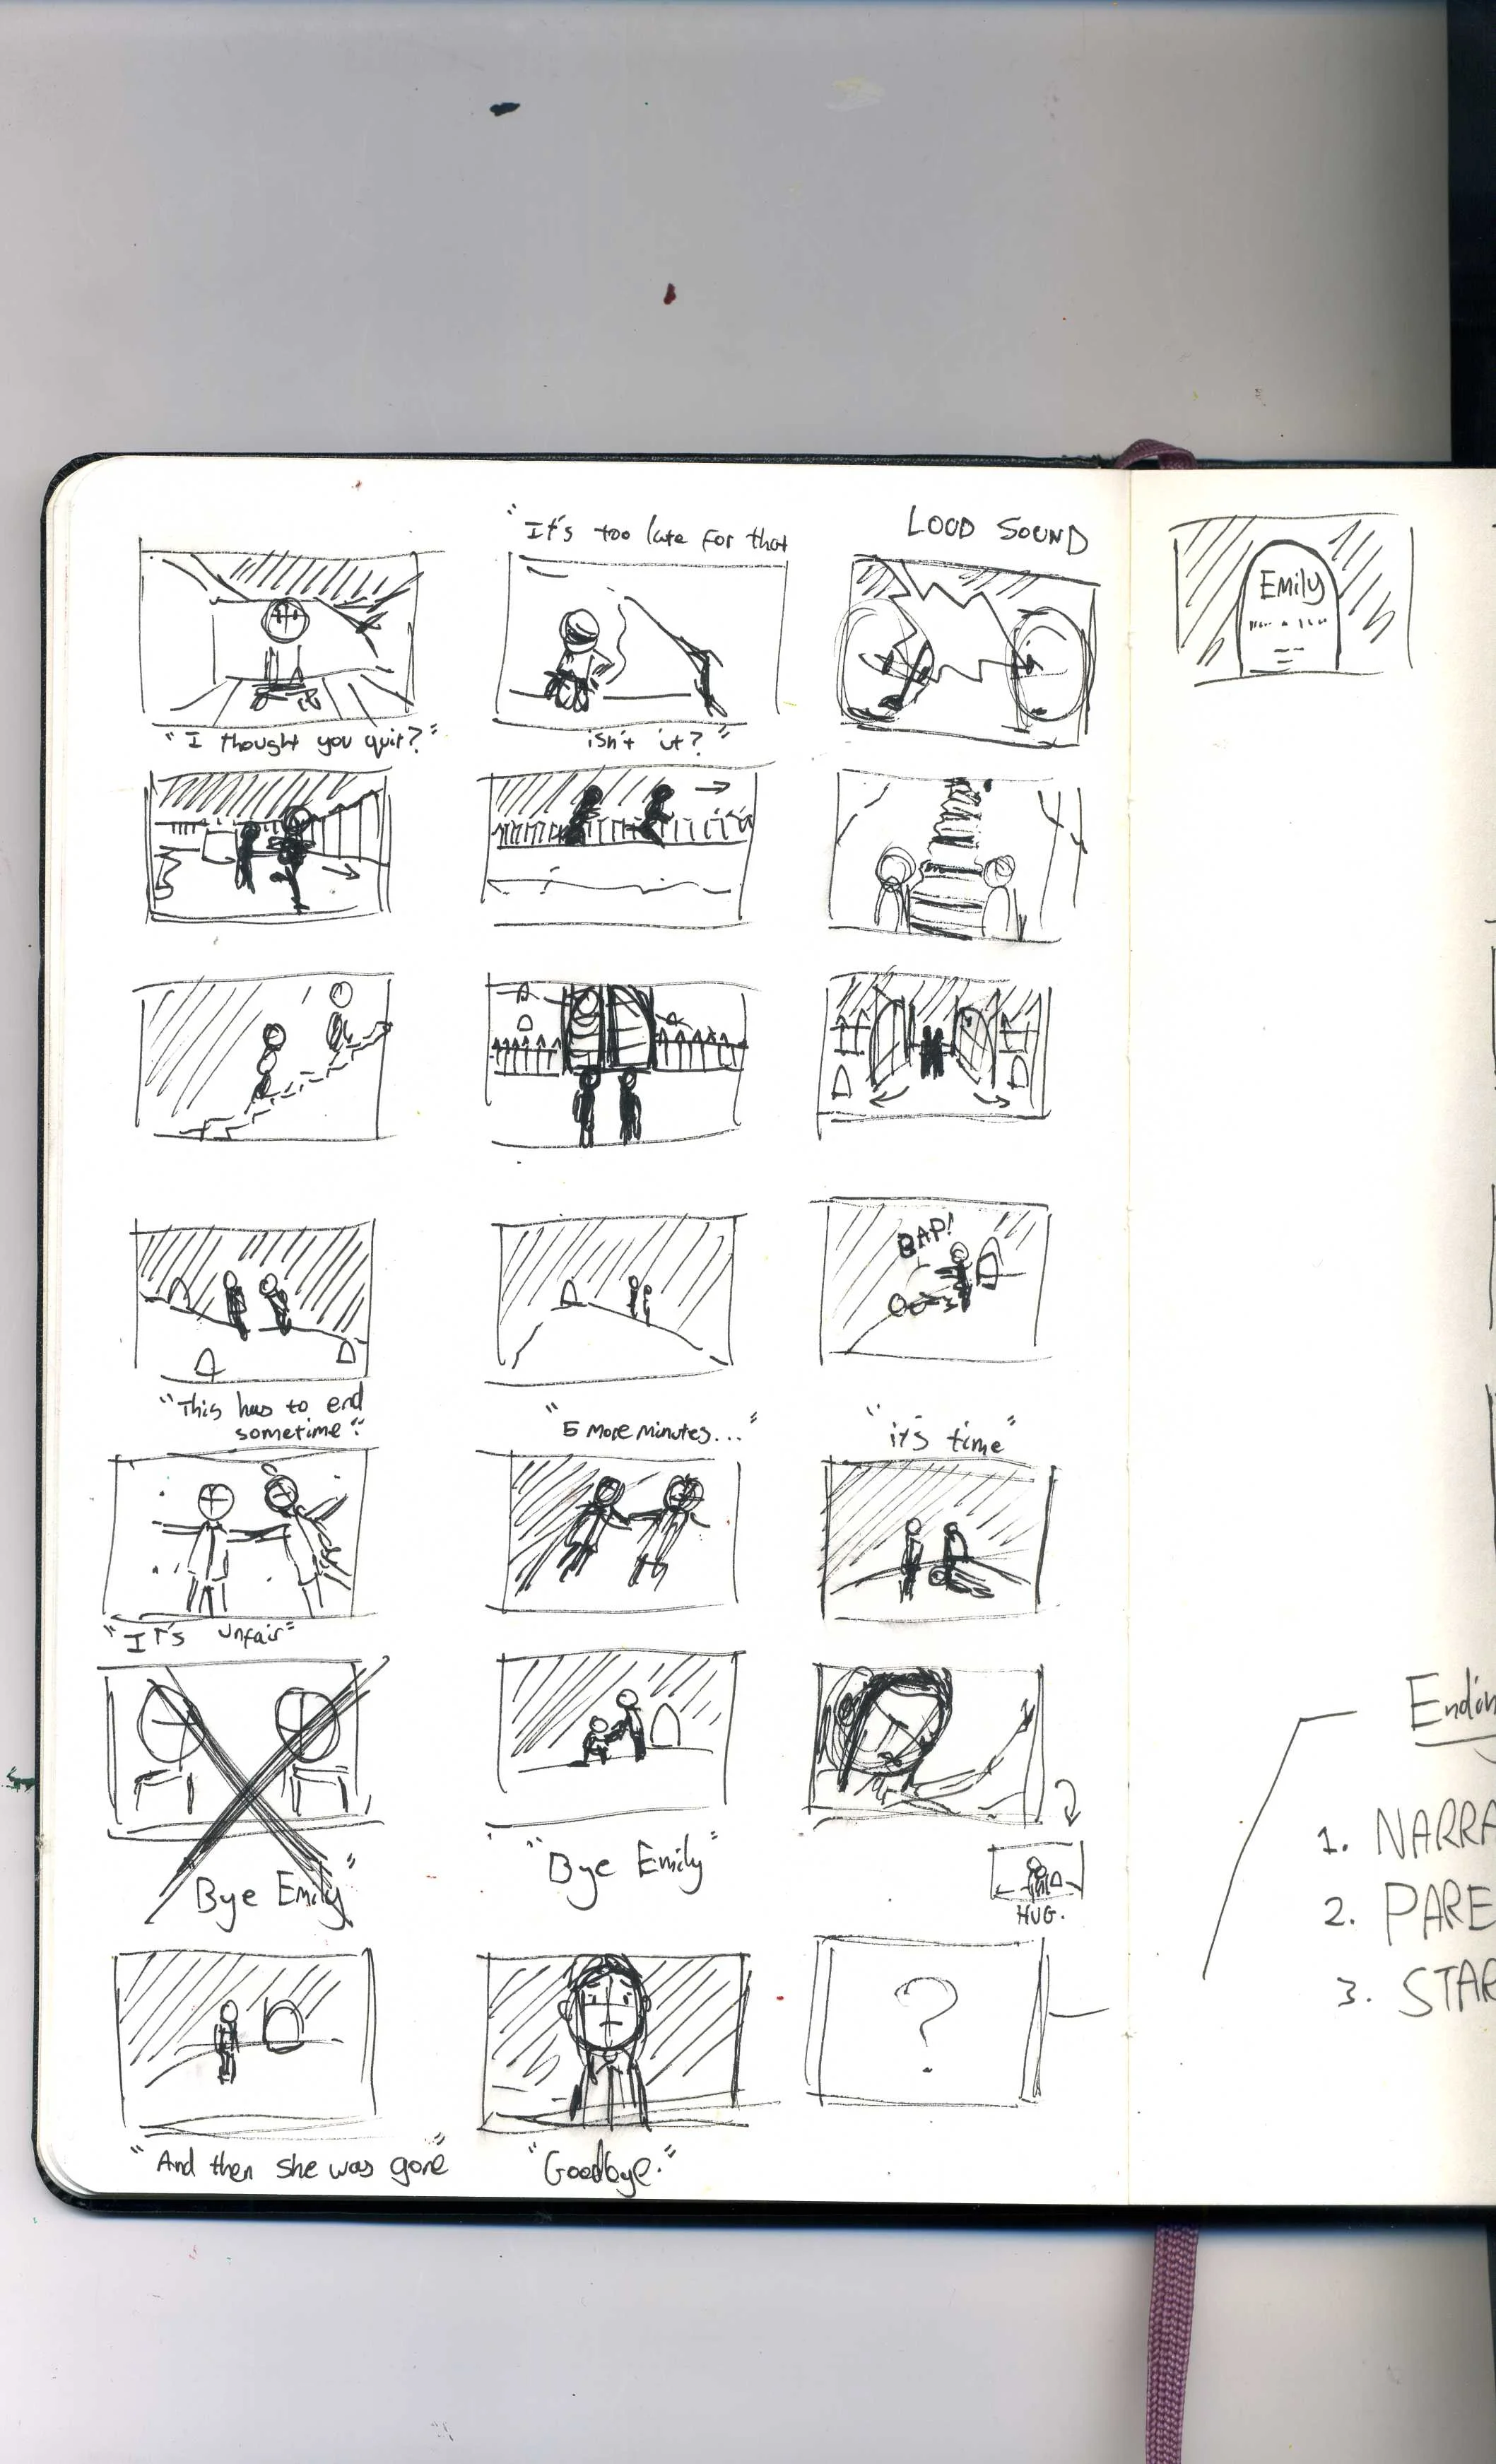 "It's too late for that
LOUD SOUND
"I thought you quit?"
isn't it?"
Emily
BAP!
"This has to end
sometime."
"5 more minutes..."
"it's time"
"It's unfair"
Bye Emily"
"Bye Emily"
HUG.
?
"And then she was gone"
"Goodbye."
Endin
1. NARRA
2. PARE
3. STAR